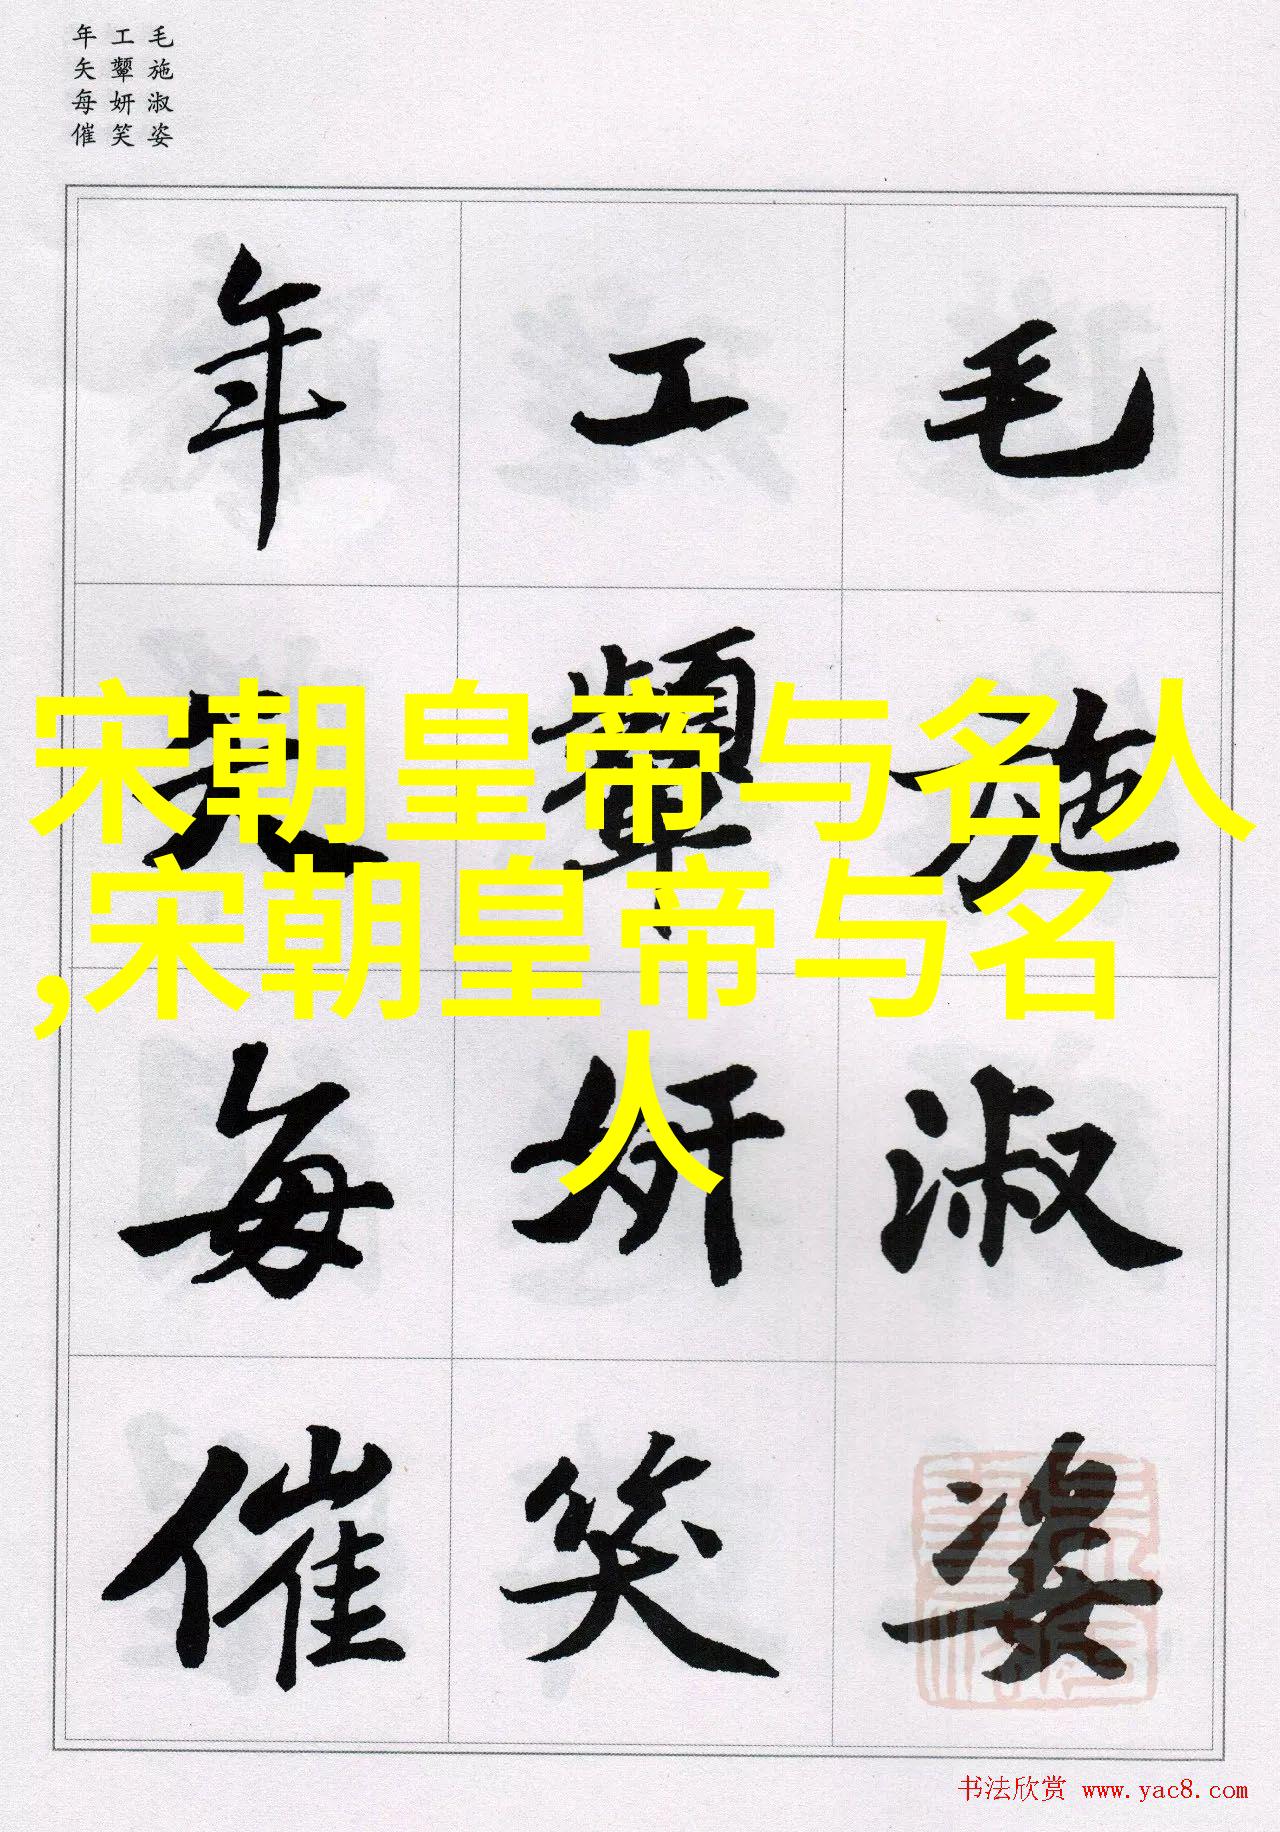 毛施淑姿
工颦妍笑
年矢每催
毛施淑姿
工颦妍笑
年矢每催
宋朝皇帝与名人
,宋朝皇帝与名
人
书法欣赏 www.yac8.com